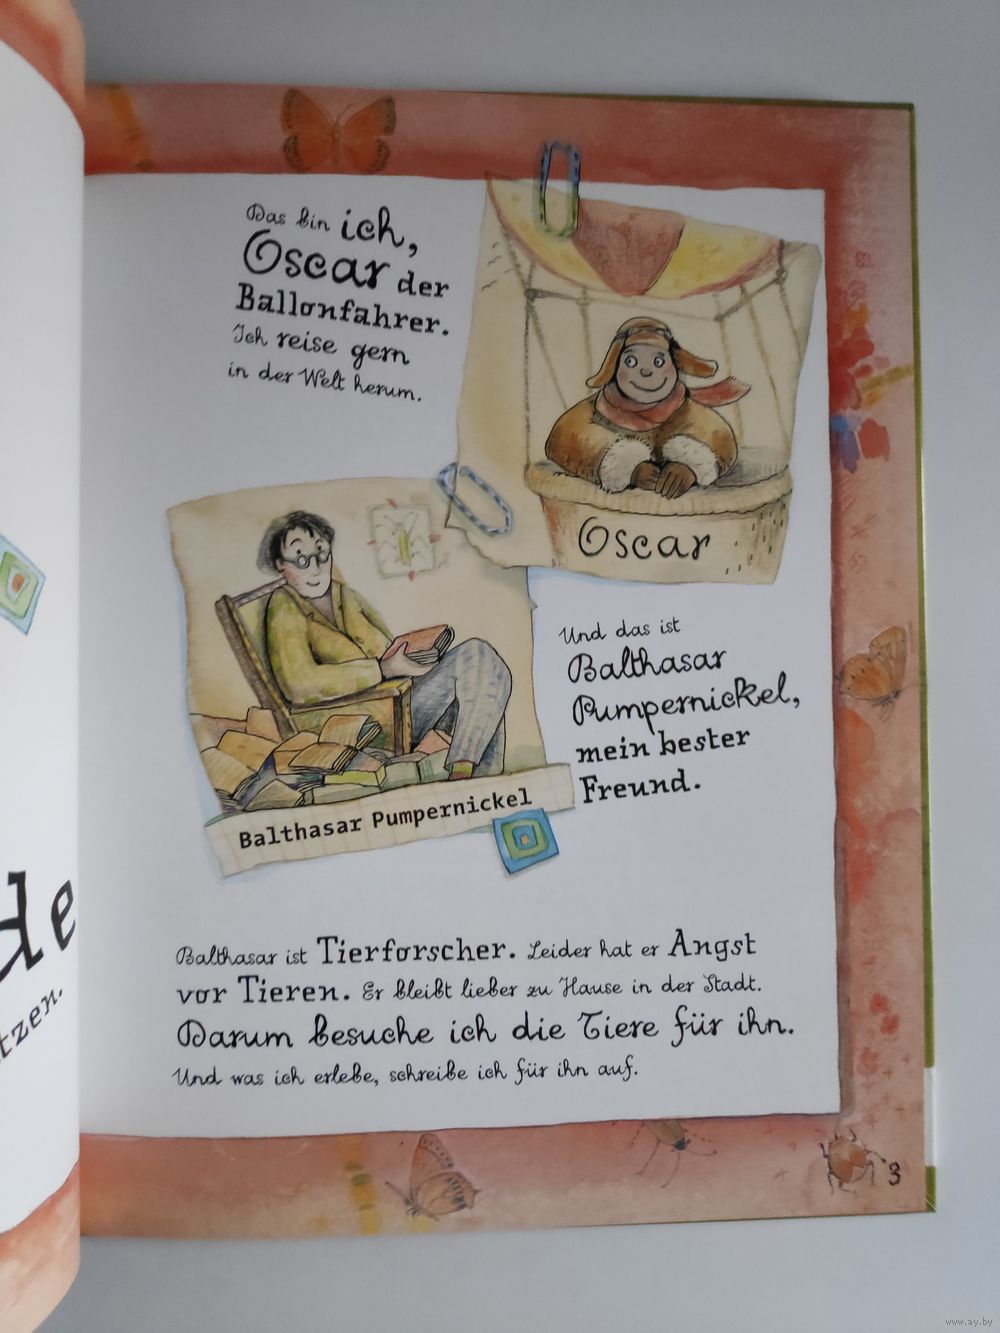 Das bin ich,
Oscar der
Ballonfahrer.
Ich reise gern
in der Welt herum.
Oscar
Balthasar Pumpernickel
Und das ist
Balthasar
Pumpernickel,
mein bester
Freund.
Balthasar ist Tierforscher. Leider hat er Angst
vor Tieren. Er bleibt lieber zu Hause in der Stadt.
Darum besuche ich die Tiere für ihn.
Und was ich erlebe, schreibe ich für ihn auf.
3
www.ay.by